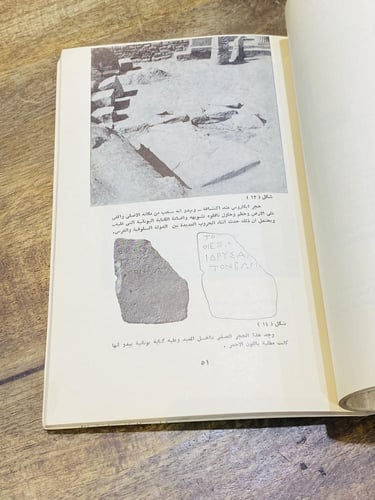 شكل (١٣)
حجر ايكاروس عند اكتشافه – ويبدو أنه سحب من مكانه الاصلي والقى
على الارض وحطم وحاول ناقلوه تشويهه واضاعة الكتابة اليونانية التي عليه
ويحتمل ان ذلك حدث اثناء الحروب المديدة بين الدولة السلوقية والفرس.
ΙΔΡΥΣΑ
ΤΟΝΒΩΜ
شكل (١٤)
وجد هذا الحجر الصغير داخل المعبد وعليه كتابة يونانية يبدو انها
كانت مطلية باللون الاحمر .
٥١